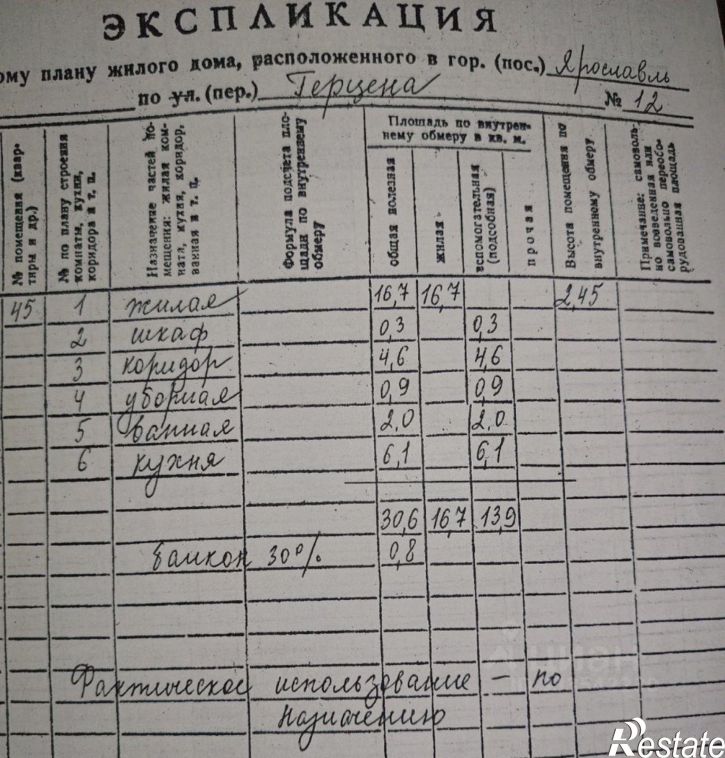 ЭКСПЛИКАЦИЯ
ому плану жилого дома, расположенного в гор. (пос.) Ярославль
по ул. (пер.) Герцена № 12
№ помещения (квар-
тиры и др.)
№ по плану строения
комнаты, кухни,
коридора и т. п.
Назначение частей по-
мещения: жилая ком-
ната, кухня, коридор,
ванная и т. п.
Формула подсчета пло-
щади по внутреннему
обмеру
Площадь по внутрен-
нему обмеру в кв. м.
общая полезная
жилая
вспомогательная
(подсобная)
прочая
Высота помещения по
внутреннему обмеру
Примечание: самоволь-
но возведенная или
самовольно переобо-
рудованная площадь
45 1 жилая 16,7 16,7 2,45
2 шкаф 0,3 0,3
3 коридор 4,6 4,6
4 уборная 0,9 0,9
5 ванная 2,0 2,0
6 кухня 6,1 6,1
30,6 16,7 13,9
балкон 30% 0,8
Фактическое использование — по
назначению
Restate